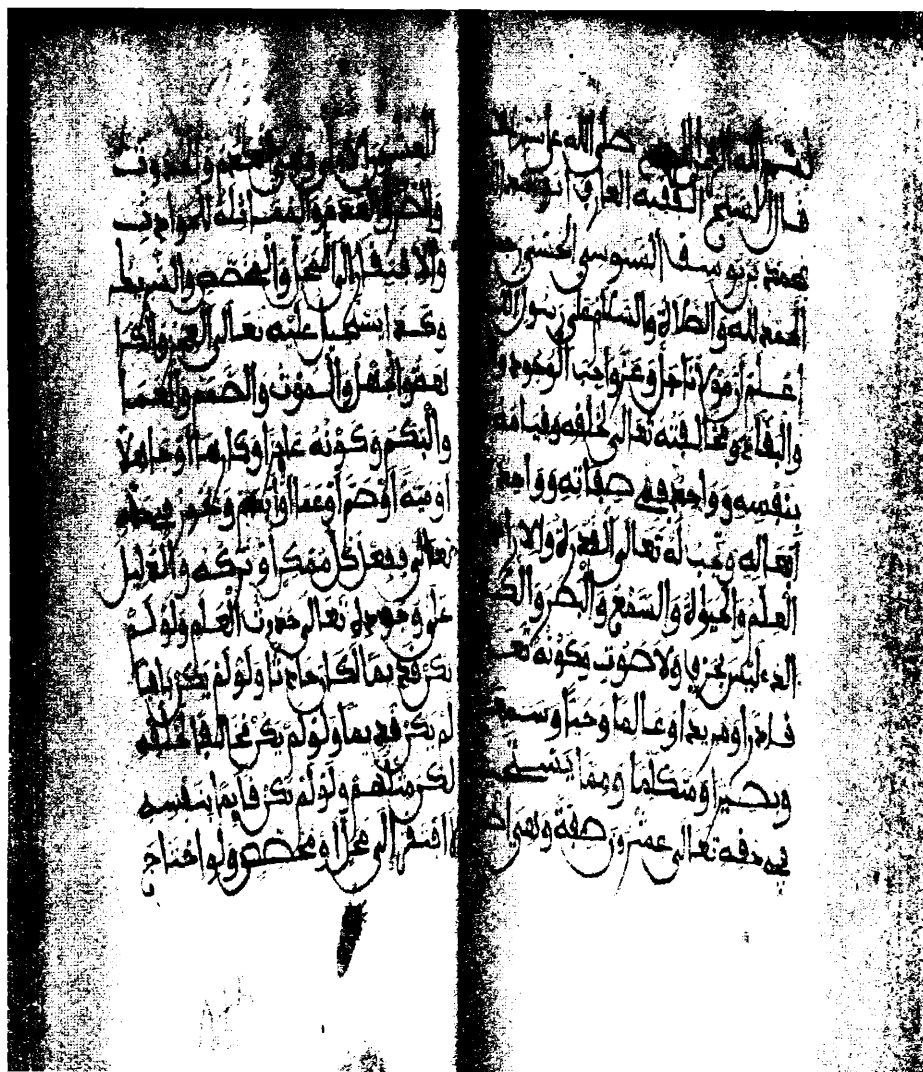 بسم الله الرحمن الرحيم صلى الله على سيدنا
قال الشيخ الفقيه
محمد بن يوسف السنوسي الحسني
الحمد لله والصلاة والسلام على رسول الله
اعلم أن مولانا جل وعز واجب الوجود و
والبقاء ومخالفته تعالى لخلقه وقيامه
بنفسه وواحد في صفاته وواحد
أفعاله وتجب له تعالى القدرة والارا
العلم والحيوة والسمع والبصر والك
الذي ليس بحرف ولا صوت وكونه تعـ
قادرا ومريدا وعالما وحيا وسميعـ
وبصيرا ومتكلما ومما يستحيل
في حقه تعالى عشرون صفة وهي
العشرين الأولى وهي العدم والحدوث
والعدم والمماثلة للحوادث
والافتقار إلى المحل والمخصص والشريك
وكذا يستحيل عليه تعالى العجز والكرا
هة والجهل والموت والصمم والعما
والبكم وكونه عاجزا وكارها أو جاهلا
أو ميتا أو أصم أو أعما أو أبكم ويجوز في حقه
تعالى فعل كل ممكن أو تركه والدليل
على وجوده تعالى حدوث العلم ولو لم
يكن قديما لكان حادثا ولو لم يكن باقيا
لم يكن قديما ولو لم يكن مخالفا لخلقه
لكن مثلهم ولو لم يكن قايما بنفسه
لافتقر إلى محل أو مخصص ولو احتاج